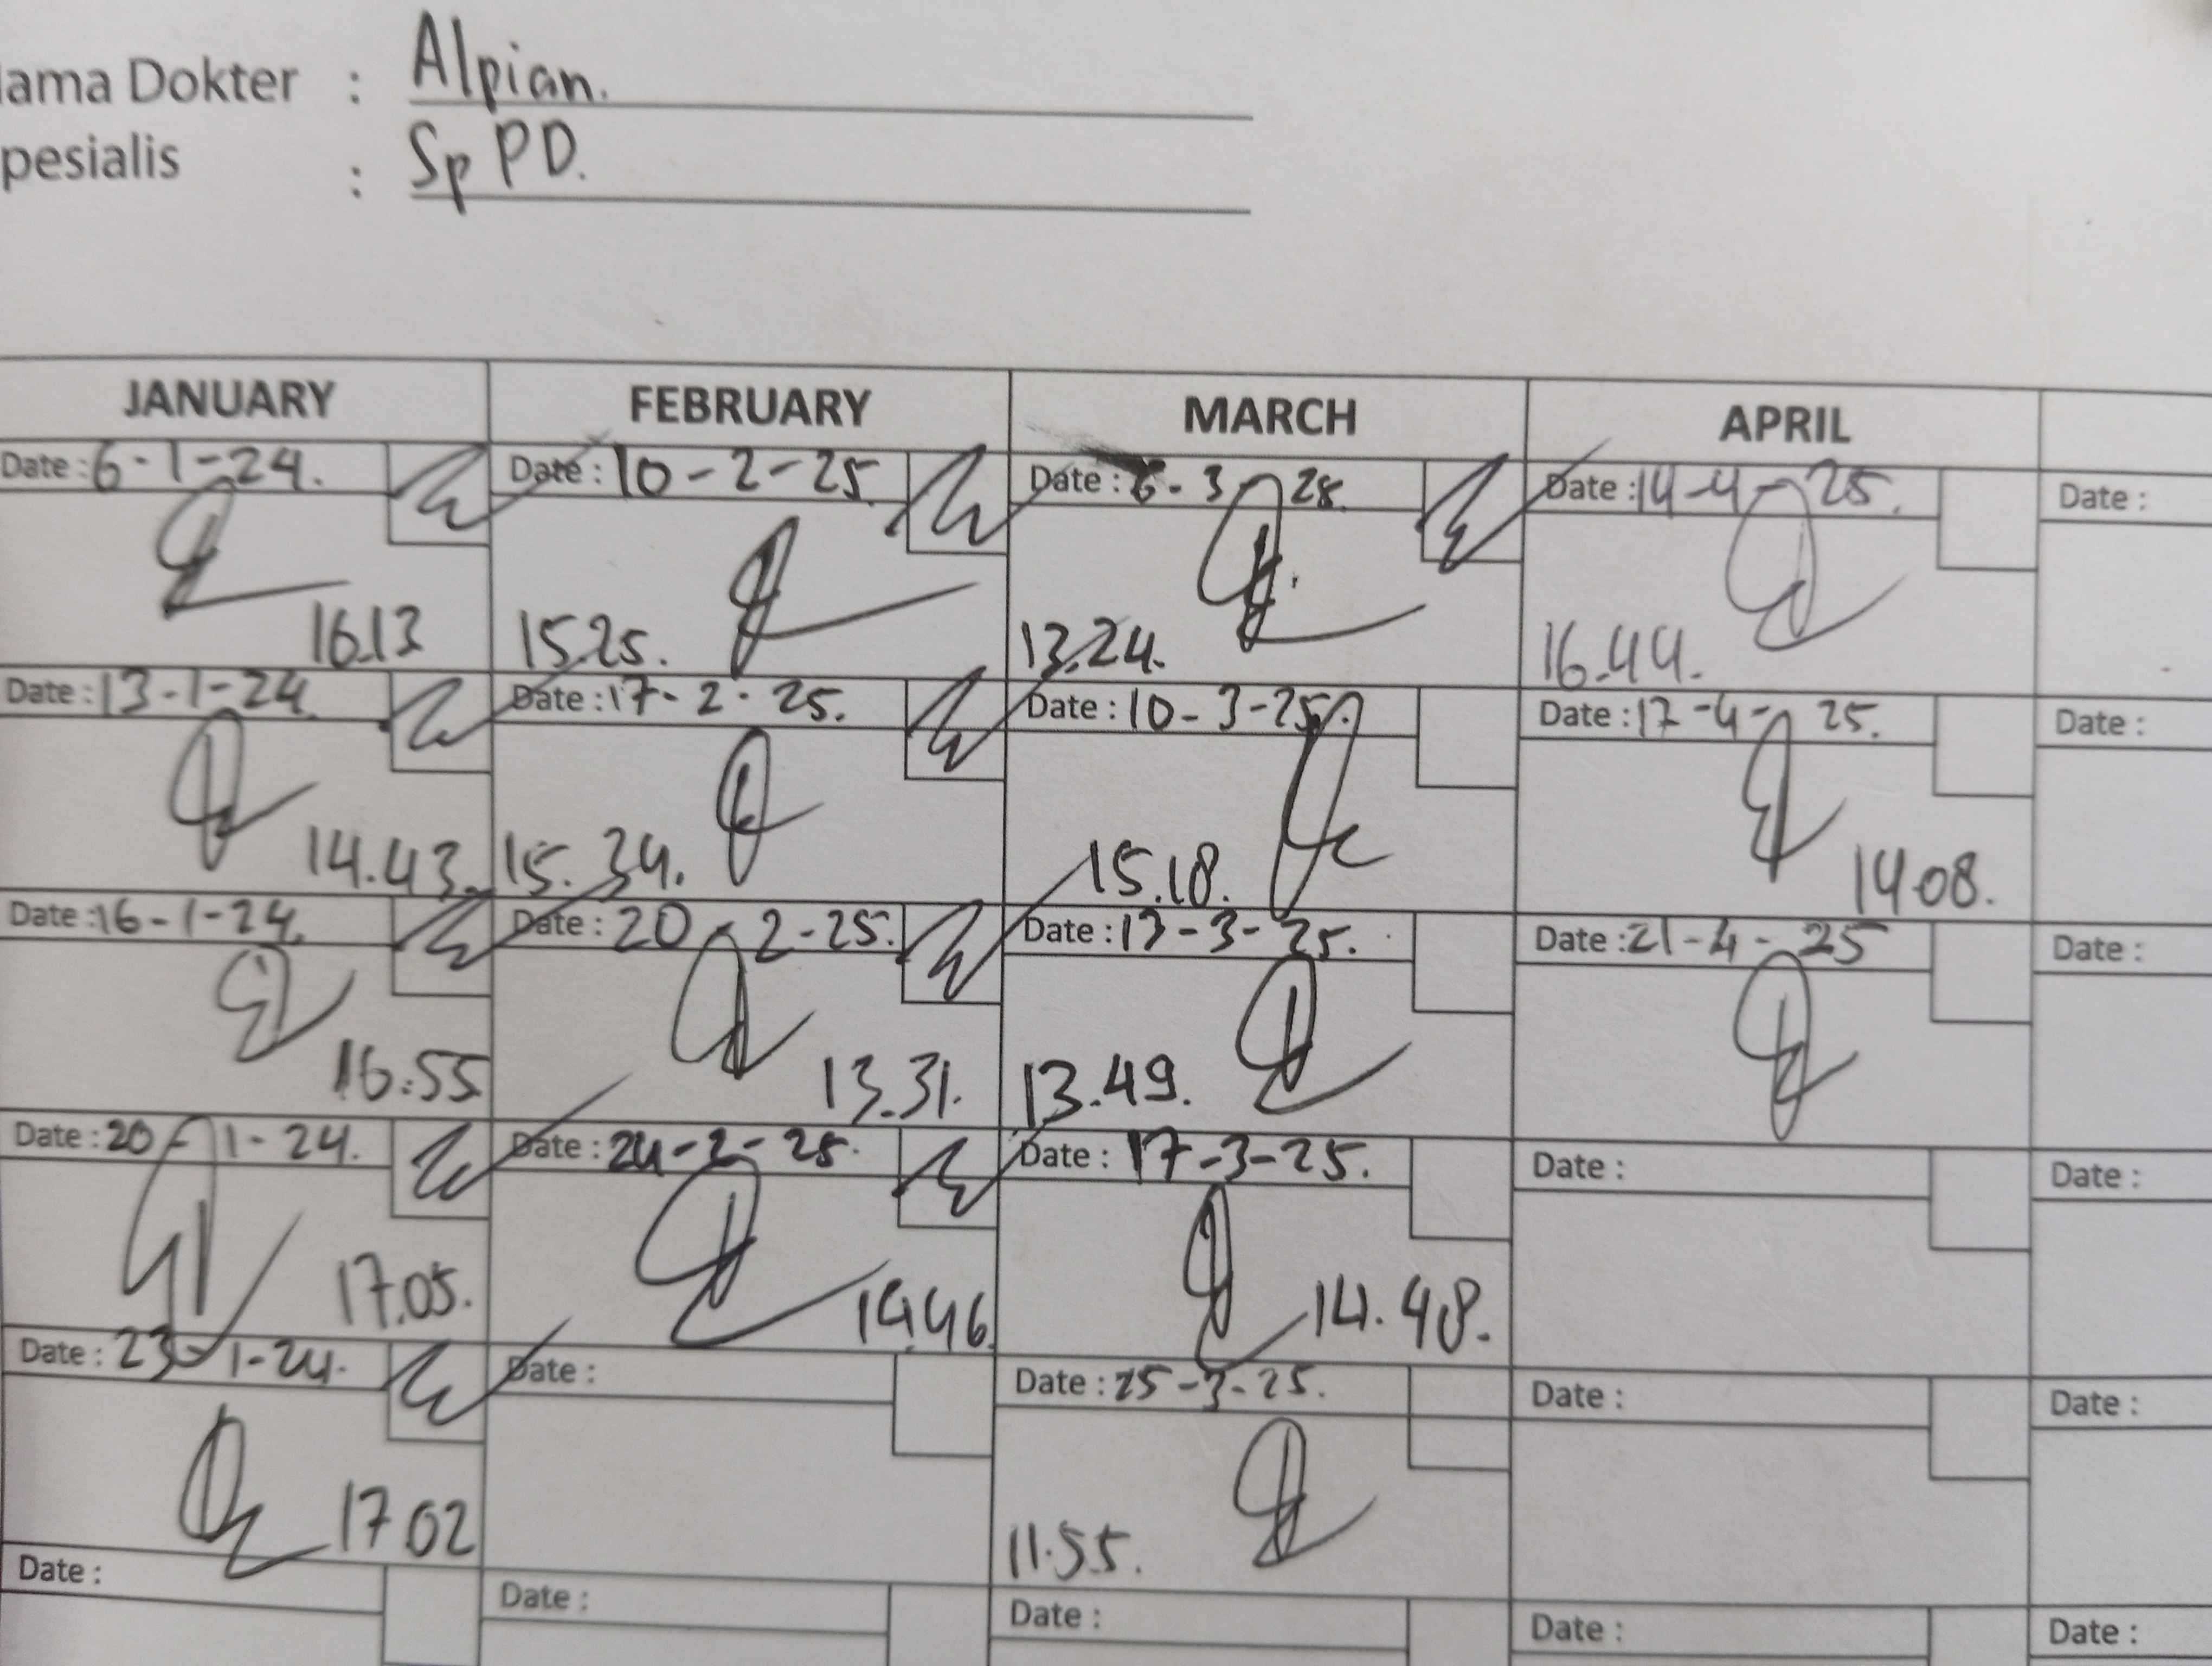 ama Dokter : Alpian.
pesialis : Sp PD.
JANUARY FEBRUARY MARCH APRIL
Date : 6-1-24. Date : 10-2-25 Date : 6-3 Date : 14-4-25. Date :
16.13 15.25. 13.24. 16.44.
Date : 13-1-24. Date : 17-2-25. Date : 10-3-25. Date : 17-4-25. Date :
14.43. 15.34. 15.18. 14.08.
Date : 16-1-24. Date : 20-2-25. Date : 13-3-25. Date : 21-4-25 Date :
16.55 13.31. 13.49.
Date : 20-1-24. Date : 24-2-25. Date : 17-3-25. Date : Date :
17.05. 14.46 14.48.
Date : 23-1-24. Date : Date : 25-3-25. Date : Date :
17 02 11.55.
Date : Date : Date : Date : Date :